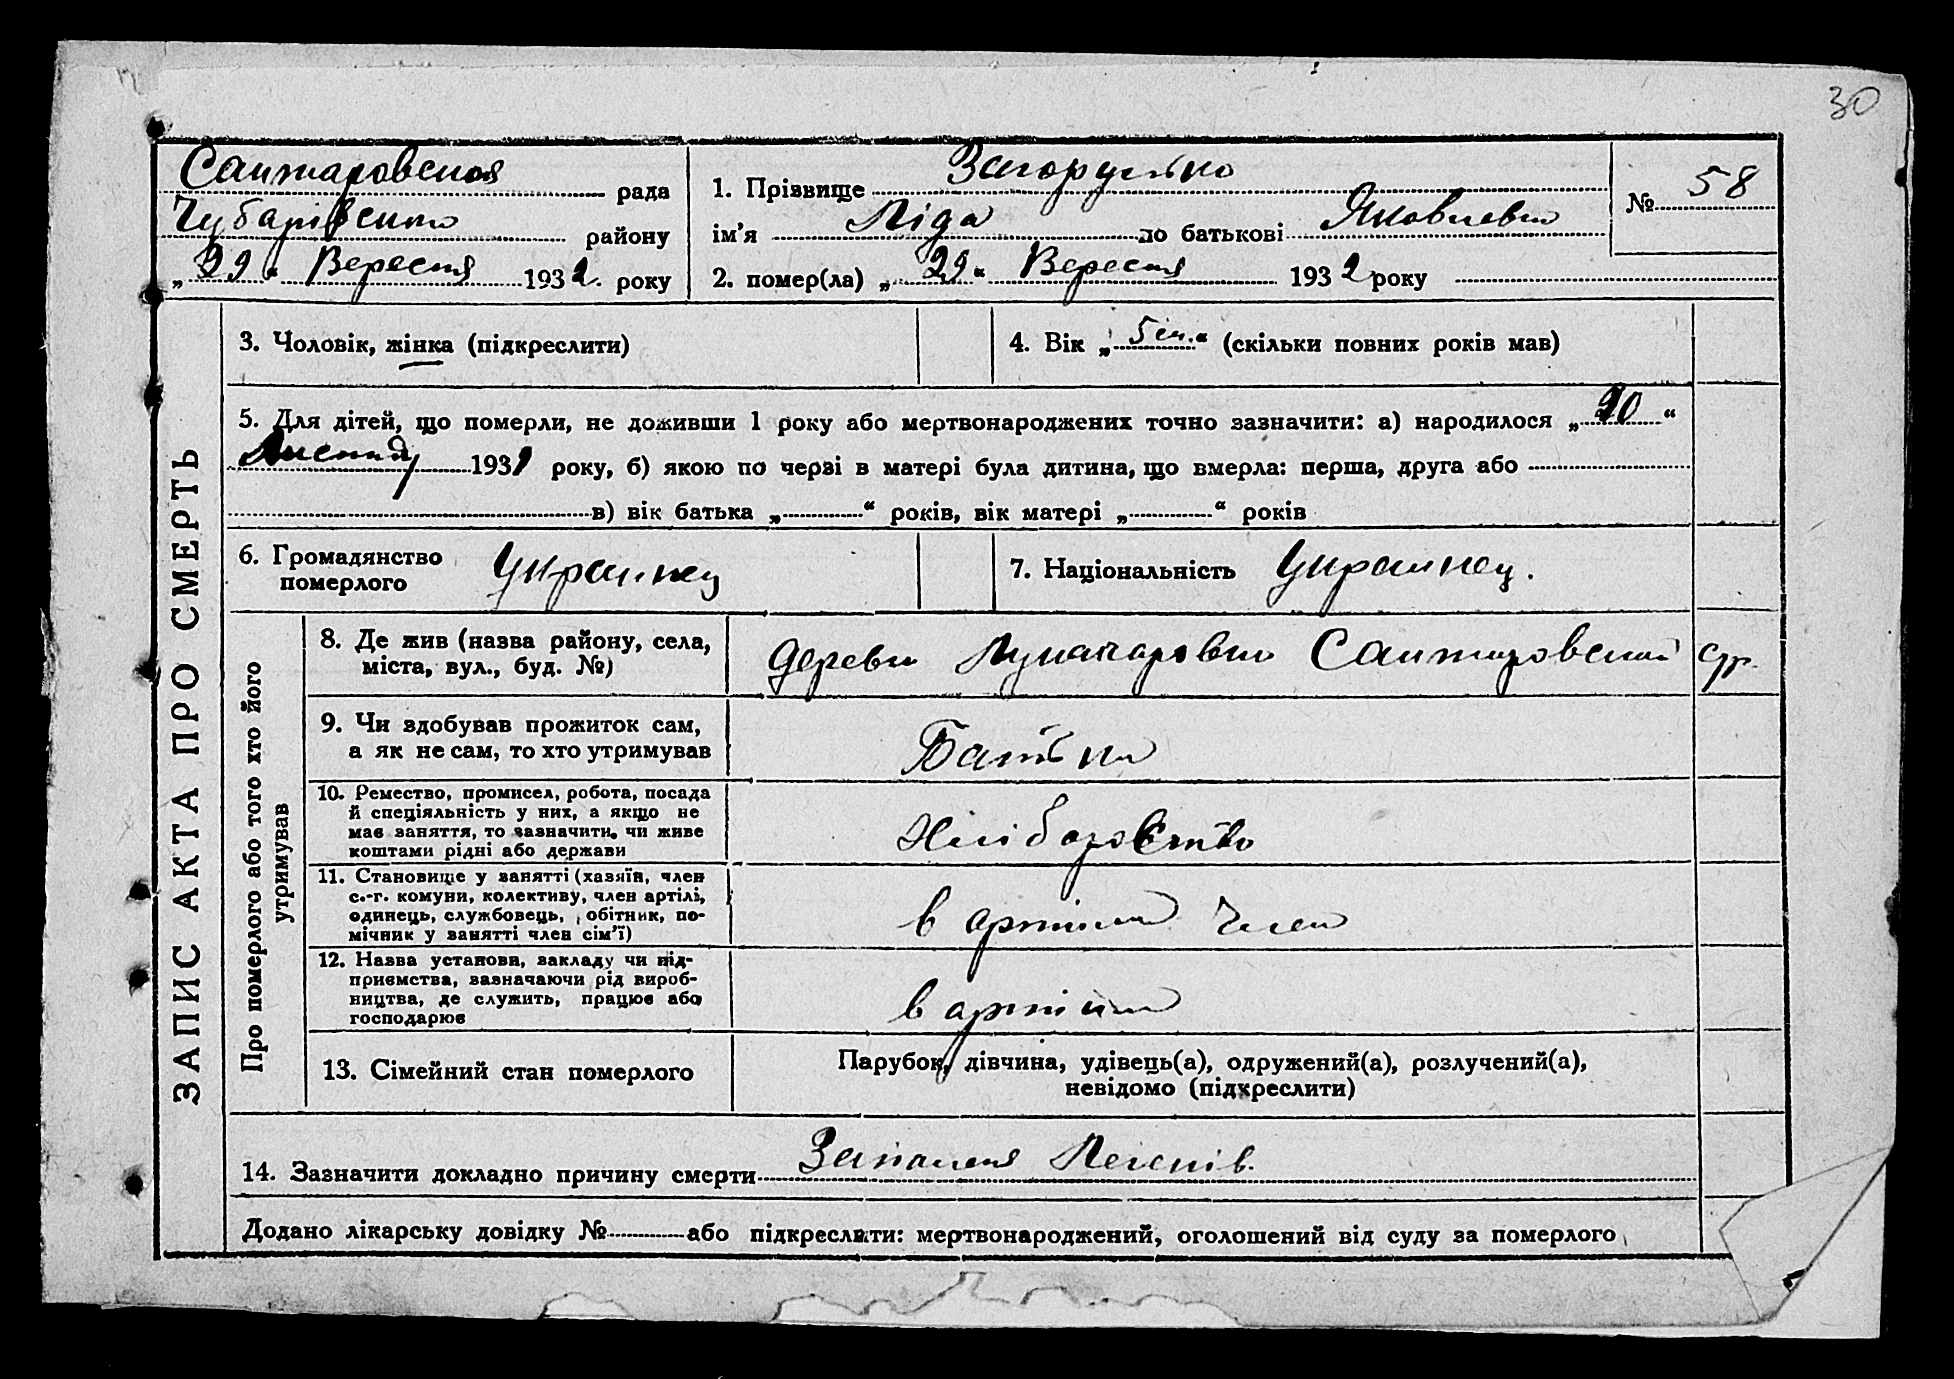 30
Сантаровская рада
Чубарівського району
„29“ Вересня 1932 року
1. Прізвище Загорулько
ім’я Ліда по батькові Яковлевна
2. помер(ла) „29“ Вересня 1932 року
№ 58
ЗАПИС АКТА ПРО СМЕРТЬ
3. Чоловік, жінка (підкреслити)
4. Вік „5 “ (скільки повних років мав)
5. Для дітей, що померли, не доживши 1 року або мертвонароджених точно зазначити: а) народилося „20“
193 року, б) якою по черзі в матері була дитина, що вмерла: перша, друга або
в) вік батька „ “ років, вік матері „ “ років
6. Громадянство
померлого
Украинец
7. Національність Украинец.
Про померлого або того хто його
утримував
8. Де жив (назва району, села,
міста, вул., буд. №)
деревн Луначаровка Сантаровской с/р.
9. Чи здобував прожиток сам,
а як не сам, то хто утримував
Батько
10. Ремество, промисел, робота, посада
й спеціяльність у них, а якщо не
має заняття, то зазначити, чи живе
коштами рідні або держави
Хліборобство
11. Становище у занятті (хазяїн, член
с.-г. комуни, колективу, член артілі,
одинець, службовець, обітник, по-
мічник у занятті член сім’ї)
в артили член
12. Назва установи, закладу чи під-
приємства, зазначаючи рід вироб-
ництва, де служить, працює або
господарює
в артили
13. Сімейний стан померлого
Парубок, дівчина, удівець(а), одружений(а), розлучений(а),
невідомо (підкреслити)
14. Зазначити докладно причину смерти Запаленя Легенів.
Додано лікарську довідку № або підкреслити: мертвонароджений, оголошений від суду за померлого